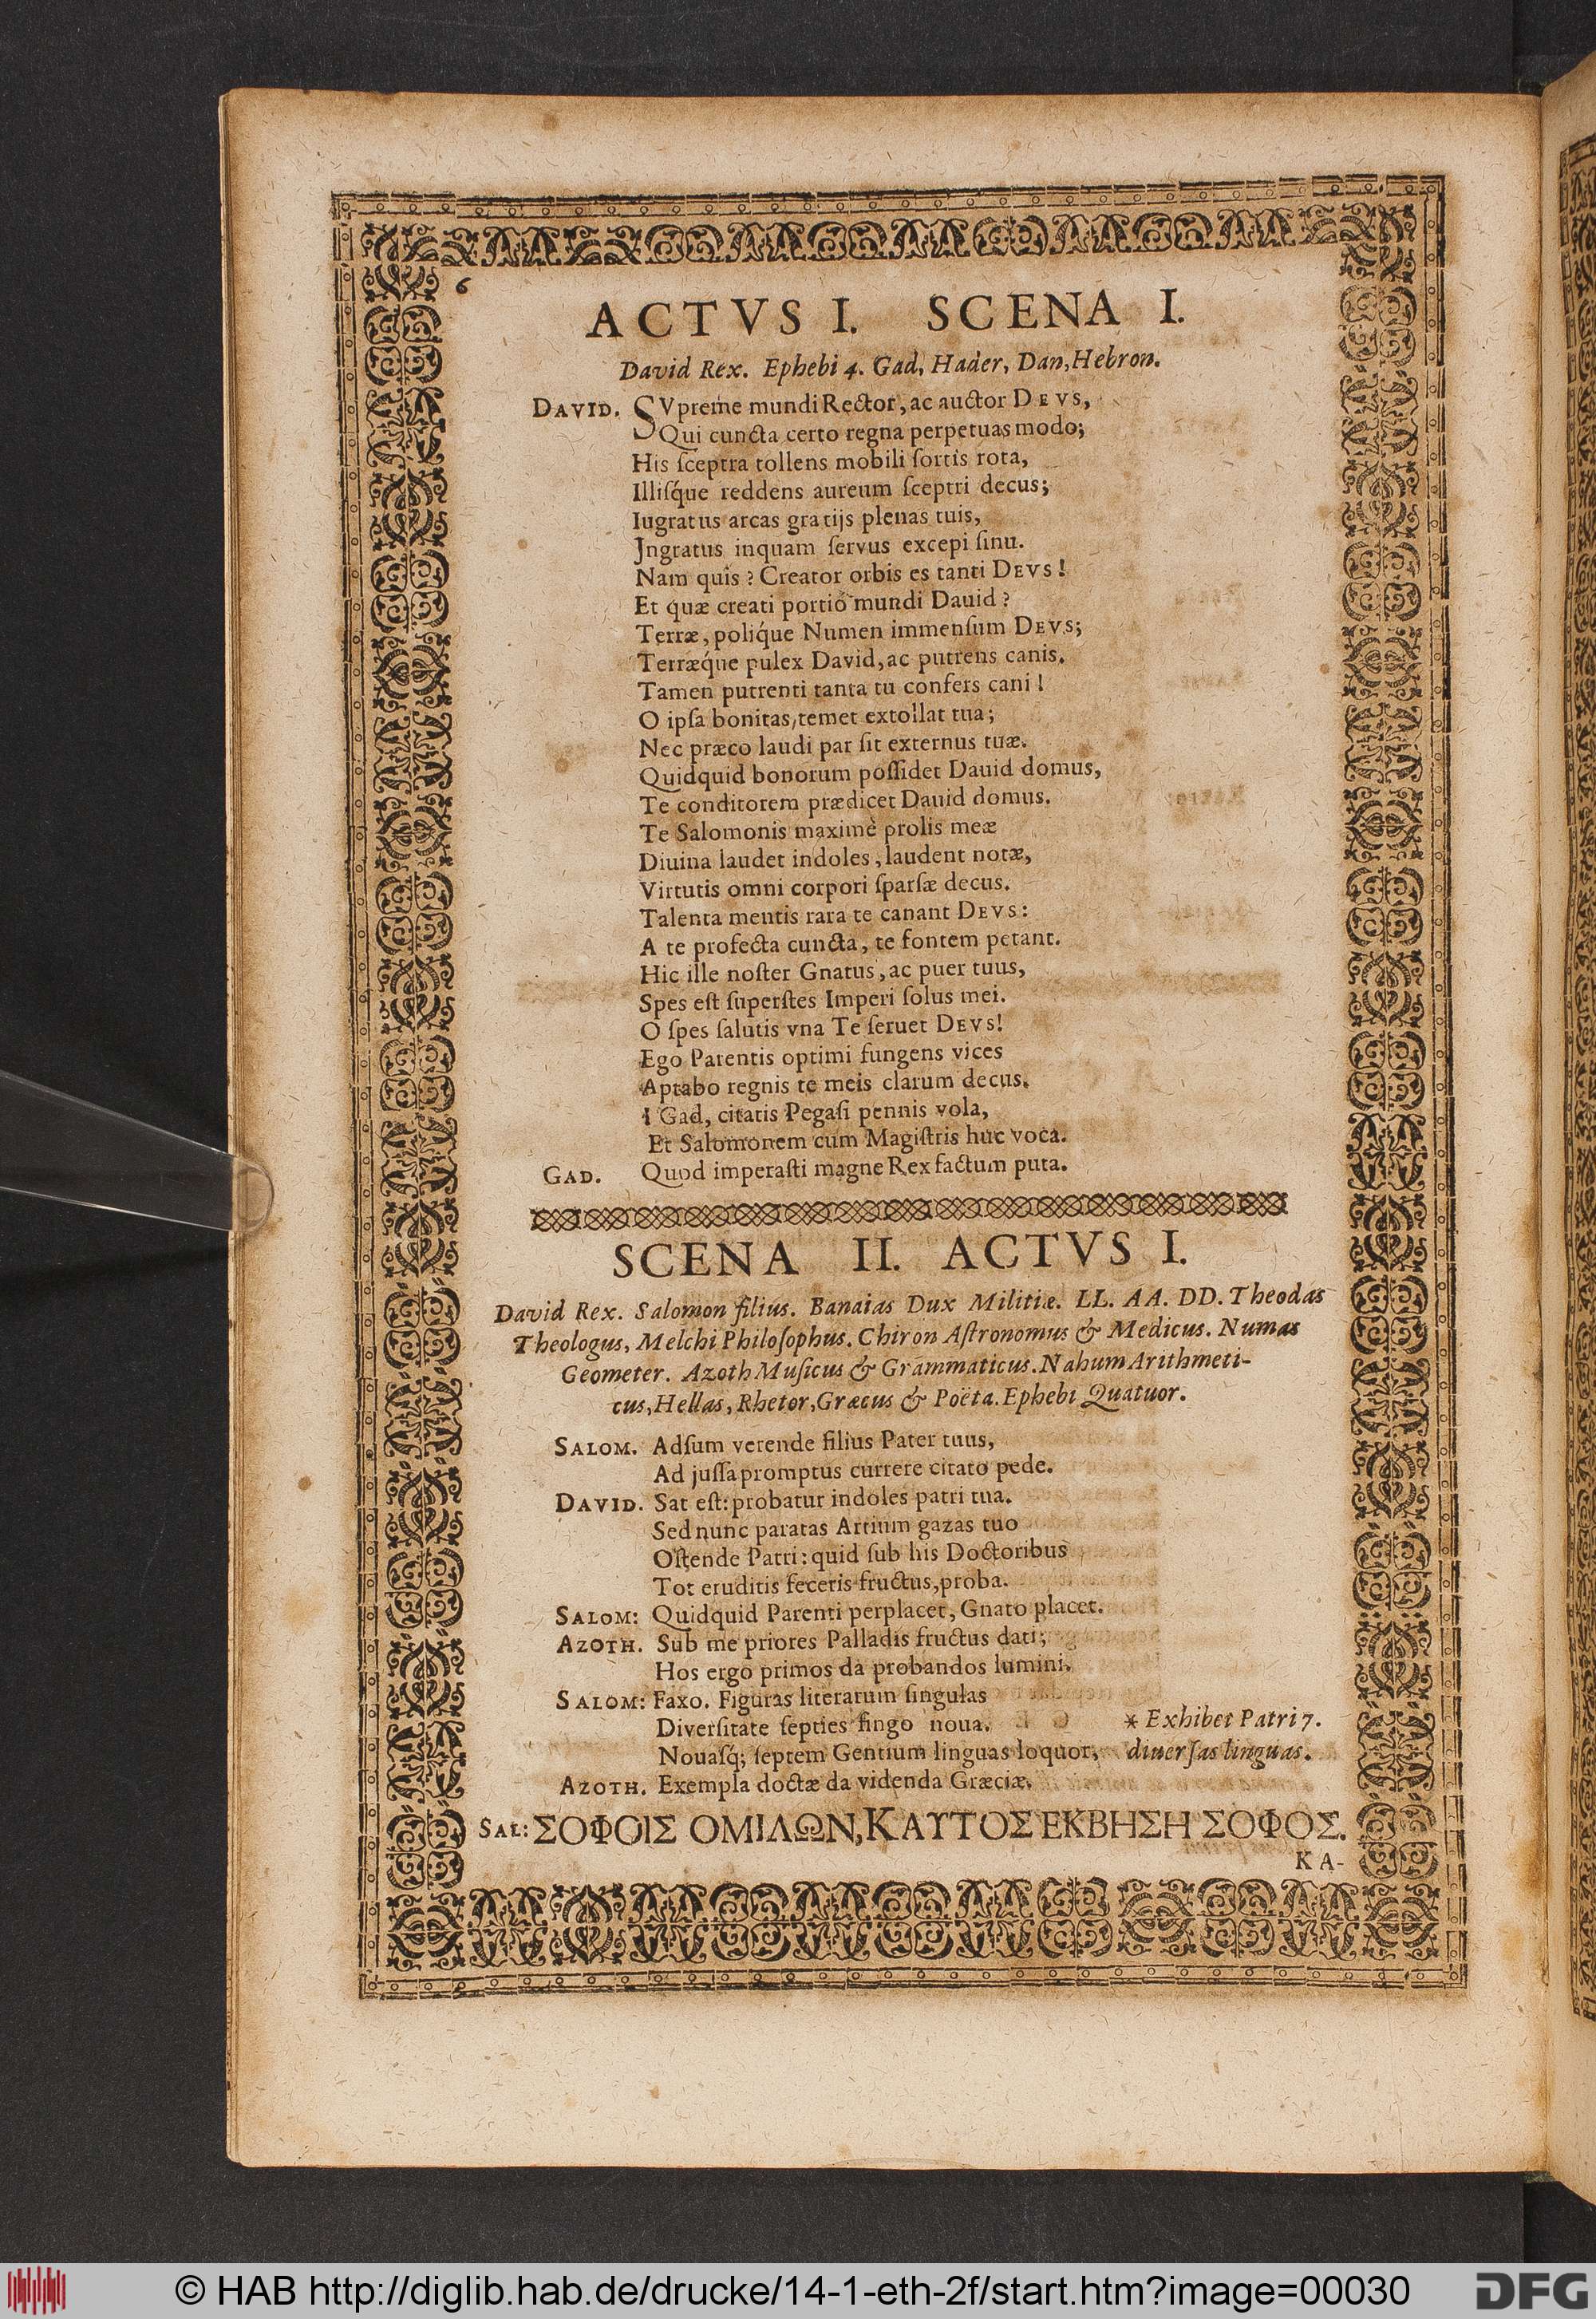 6
ACTVS I. SCENA I.
David Rex. Ephebi 4. Gad, Hader, Dan, Hebron.
DAVID. SVpreme mundi Rector, ac auctor DEVS,
Qui cuncta certo regna perpetuas modo;
His ſceptra tollens mobili ſortis rota,
Illiſq́ue reddens aureum ſceptri decus;
Iugratus arcas gratijs plenas tuis,
Jngratus inquam ſervus excepi ſinu.
Nam quis? Creator orbis es tanti DEVS!
Et quæ creati portió mundi Dauid?
Terræ, poliq́ue Numen immenſum DEVS;
Terræq́ue pulex David, ac putrens canis.
Tamen putrenti tanta tu confers cani!
O ipſa bonitas, temet extollat tua;
Nec præco laudi par ſit externus tuæ.
Quidquid bonorum poſſidet Dauid domus,
Te conditorem prædicet Dauid domus.
Te Salomonis maximè prolis meæ
Diuina laudet indoles, laudent notæ,
Virtutis omni corpori ſparſæ decus.
Talenta mentis rara te canant DEVS:
A te profecta cuncta, te fontem petant.
Hic ille noſter Gnatus, ac puer tuus,
Spes eſt ſuperſtes Imperi ſolus mei.
O ſpes ſalutis vna Te ſeruet DEVS!
Ego Parentis optimi fungens vices
Aptabo regnis te meis clarum decus.
I Gad, citatis Pegaſi pennis vola,
Et Salomonem cum Magiſtris huc voca.
GAD. Quod imperaſti magne Rex factum puta.
SCENA II. ACTVS I.
David Rex. Salomon filius. Banaias Dux Militiæ. LL. AA. DD. Theodas
Theologus, Melchi Philoſophus. Chiron Aſtronomus & Medicus. Numas
Geometer. Azoth Muſicus & Grammaticus. Nahum Arithmeti-
cus, Hellas, Rhetor, Græcus & Poëta. Ephebi Quatuor.
SALOM. Adſum verende filius Pater tuus,
Ad juſſa promptus currere citato pede.
DAVID. Sat eſt: probatur indoles patri tua.
Sed nunc paratas Artium gazas tuo
Oſtende Patri: quid ſub his Doctoribus
Tot eruditis feceris fructus, proba.
SALOM: Quidquid Parenti perplacet, Gnato placet.
AZOTH. Sub me priores Palladis fructus dati;
Hos ergo primos da probandos lumini.
SALOM: Faxo. Figuras literarum ſingulas
Diverſitate ſepties fingo noua. * Exhibet Patri 7.
Nouaſq; ſeptem Gentium linguas loquor, diuerſas linguas.
AZOTH. Exempla doctæ da videnda Græciæ.
SAL: ΣΟΦΟΙΣ ΟΜΙΛΩΝ, ΚΑΥΤΟΣ ΕΚΒΗΣΗ ΣΟΦΟΣ.
KA-
© HAB http://diglib.hab.de/drucke/14-1-eth-2f/start.htm?image=00030
DFG